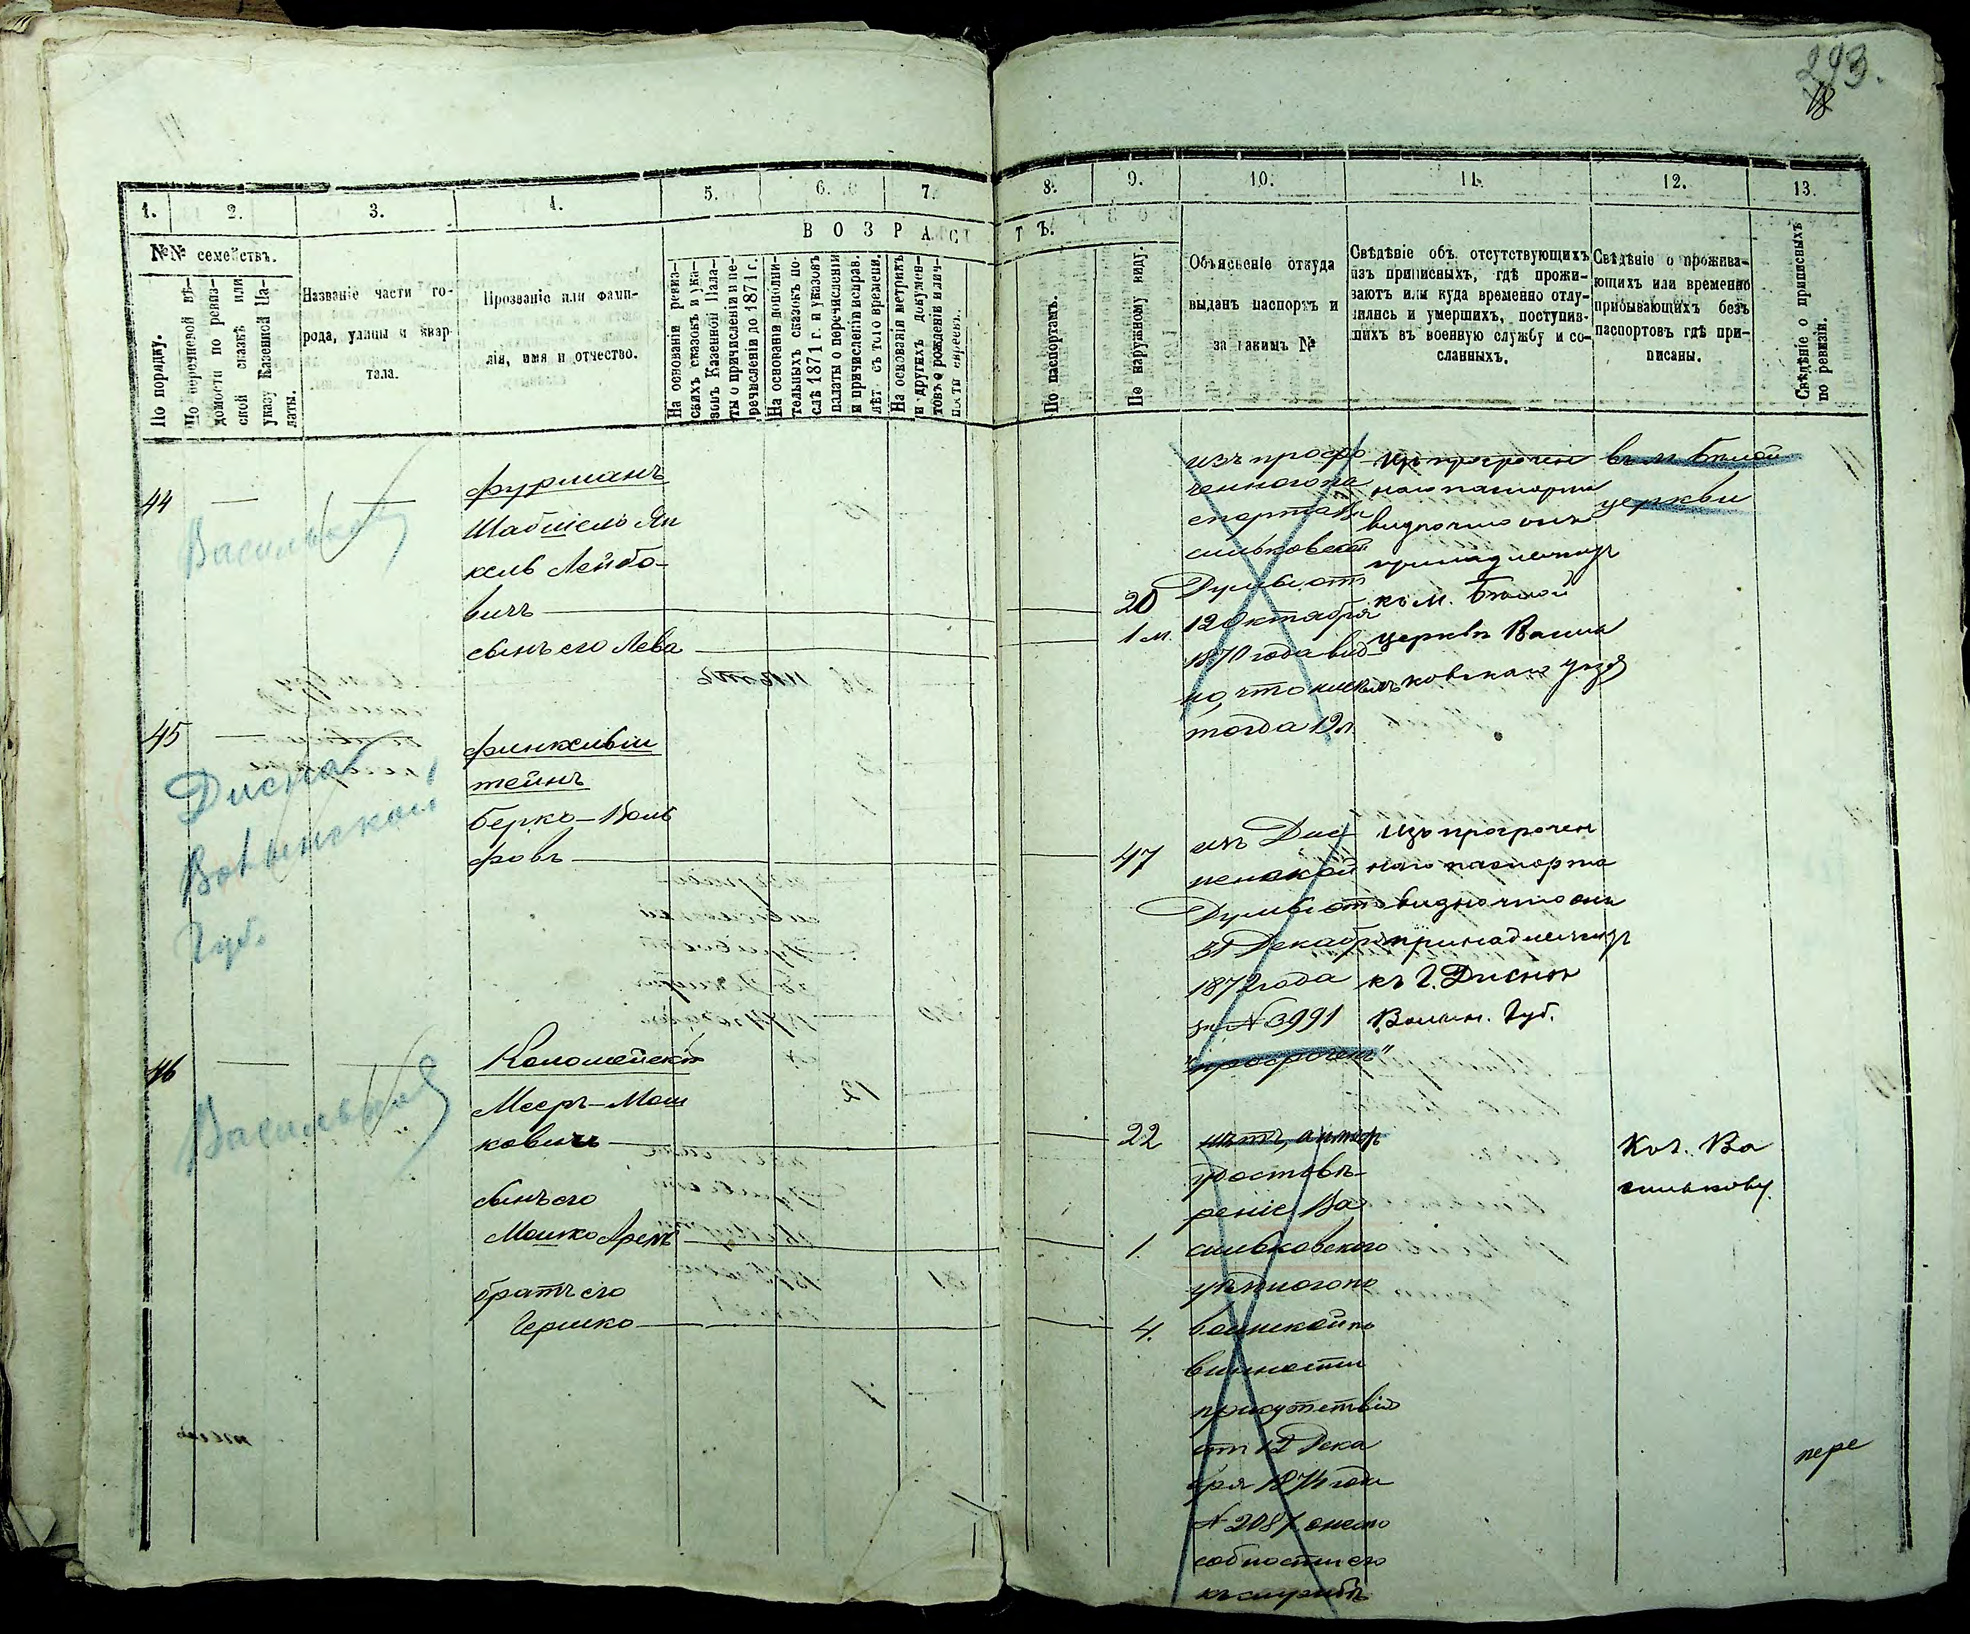 293.
18
1. 2. 3. 4. 5. 6. 7. 8. 9. 10. 11. 12. 13.
В О З Р А С Т Ъ.
№№ семействъ.
По порядку.
По перечневой вѣ-
домости по ревиз-
ской сказкѣ или
указу Казенной Па-
латы.
Названіе части го-
рода, улицы и квар-
тала.
Прозваніе или фами-
лія, имя и отчество.
На основаніи ревиз-
скихъ сказокъ и ука-
зовъ Казенной Пала-
ты о причисленіи и пе-
речисленіи до 1871 г.
На основаніи дополни-
тельныхъ сказокъ по-
слѣ 1871 г. и указовъ
палаты о перечисленіи
и причисленіи исправ.
лѣт съ того времени.
На основаніи метрикъ
и другихъ докумен-
товъ о рожденіи и лич-
ности евреевъ.
По паспортамъ.
По наружному виду.
Объясненіе откуда
выданъ паспортъ и
за какимъ №
Свѣдѣніе объ отсутствующихъ
изъ приписныхъ, гдѣ прожи-
ваютъ или куда временно отлу-
чились и умершихъ, поступив-
шихъ въ военную службу и со-
сланныхъ.
Свѣдѣніе о прожива-
ющихъ или временно
прибывающихъ безъ
паспортовъ гдѣ при-
писаны.
Свѣдѣніе о приписныхъ
по ревизіи.
44
Васильков
Фурманъ
Лейбо-
вичъ
сынъ его Лева
20
1 м.
изъ просро
ченного па
спорта Ва
сильковской
Думы отъ
12 Октября
1870 года вид
но, что
тогда 19 л
Изъ просрочен
наго паспорта
видно что онъ
принадлежитъ
къ м. Бѣлой
церкви Василь
ковскаго уѣзда
въ м. Бѣлой
церкви
45
Дисна
Губ.
Финкельш
тейнъ
Берко-Воль
фовъ
47
изъ Дис
ненской
Думы отъ
31 Декабря
1872 года
за № 3991
"просроченъ"
Изъ просрочен
наго паспорта
видно что онъ
принадлежитъ
къ г. Дисни
Губ.
46
Васильков
Мееръ-Мош
ковичъ
сынъ его
Мошко
братъ его
Гершко
22
1.
4.
Ва
сильковского
уѣзднаго по
воинской по
винности
присутствія
отъ 12 Дека
бря 1874 года
къ службѣ
Ва
сильковѣ.
пере